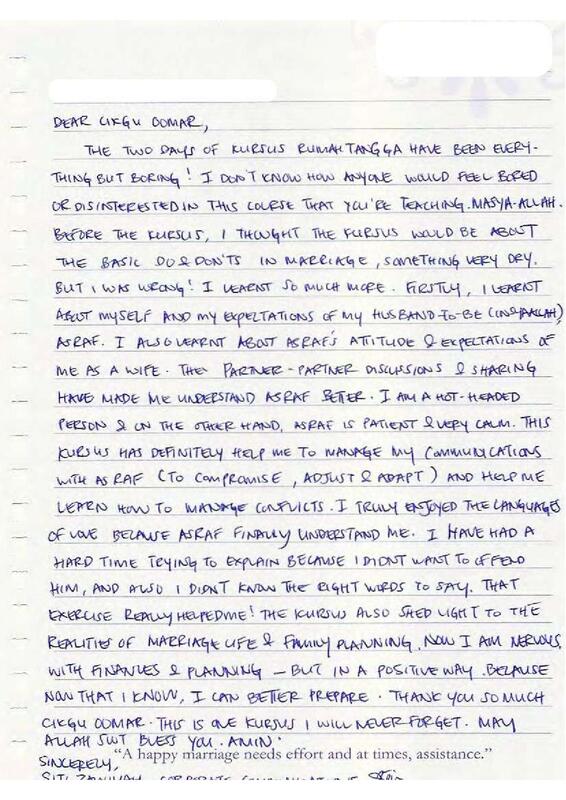 DEAR CIKGU OOMAR,
THE TWO DAYS OF KURSUS RUMAHTANGGA HAVE BEEN EVERY-
THING BUT BORING! I DON'T KNOW HOW ANYONE WOULD FEEL BORED
OR DISINTERESTED IN THIS COURSE THAT YOU'RE TEACHING. MASYA-ALLAH.
BEFORE THE KURSUS, I THOUGHT THE KURSUS WOULD BE ABOUT
THE BASIC DO & DON'TS IN MARRIAGE, SOMETHING VERY DRY.
BUT I WAS WRONG! I LEARNT SO MUCH MORE. FIRSTLY, I LEARNT
ABOUT MYSELF AND MY EXPECTATIONS OF MY HUSBAND-TO-BE (INSYAALLAH),
ASRAF. I ALSO LEARNT ABOUT ASRAF'S ATTITUDE & EXPECTATIONS OF
ME AS A WIFE. THE PARTNER-PARTNER DISCUSSIONS & SHARING
HAVE MADE ME UNDERSTAND ASRAF BETTER. I AM A HOT-HEADED
PERSON & ON THE OTHER HAND, ASRAF IS PATIENT & VERY CALM. THIS
KURSUS HAS DEFINITELY HELP ME TO MANAGE MY COMMUNICATIONS
WITH ASRAF (TO COMPROMISE, ADJUST & ADAPT) AND HELP ME
LEARN HOW TO MANAGE CONFLICTS. I TRULY ENJOYED THE LANGUAGES
OF LOVE BECAUSE ASRAF FINALLY UNDERSTAND ME. I HAVE HAD A
HARD TIME TRYING TO EXPLAIN BECAUSE I DIDNT WANT TO OFFEND
HIM, AND ALSO I DIDN'T KNOW THE RIGHT WORDS TO SAY. THAT
EXERCISE REALLY HELPED ME! THE KURSUS ALSO SHED LIGHT TO THE
REALITIES OF MARRIAGE LIFE & FAMILY PLANNING. NOW I AM NERVOUS
WITH FINANCES & PLANNING — BUT IN A POSITIVE WAY. BECAUSE
NOW THAT I KNOW, I CAN BETTER PREPARE. THANK YOU SO MUCH
CIKGU OOMAR. THIS IS ONE KURSUS I WILL NEVER FORGET. MAY
ALLAH SWT BLESS YOU. AMIN.
"A happy marriage needs effort and at times, assistance."
SINCERELY,
SITI